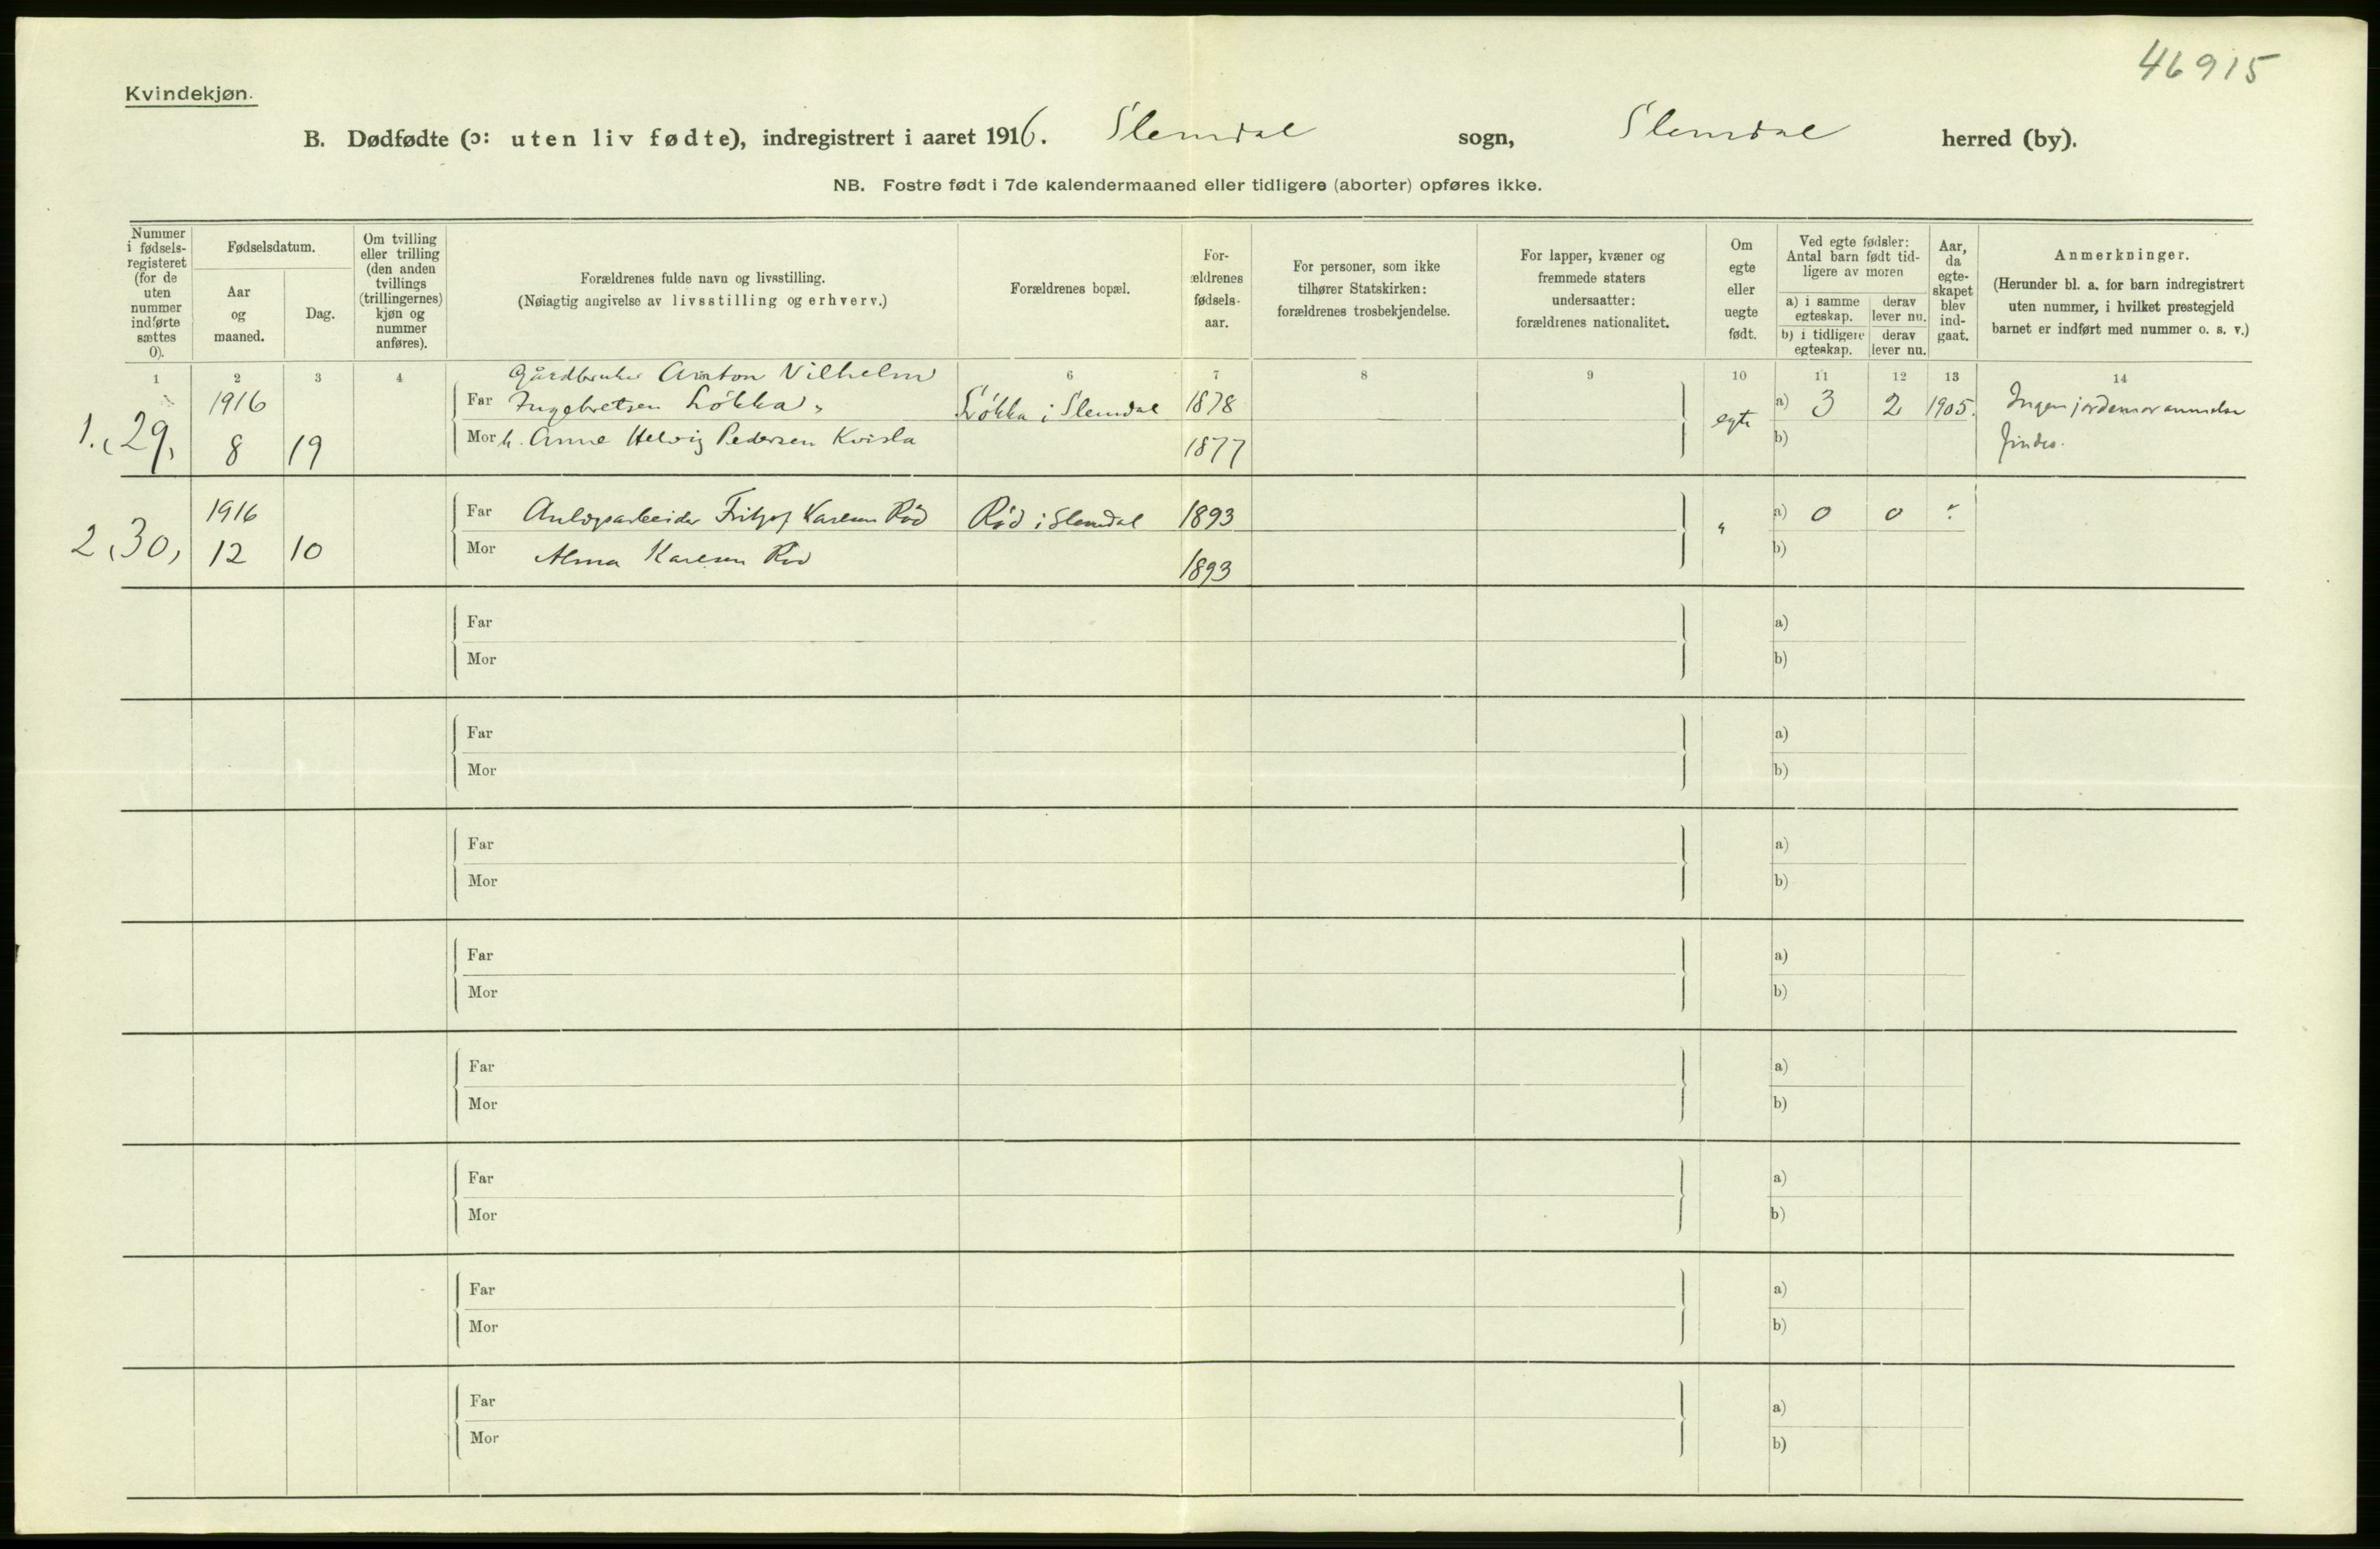 46915
Kvindekjøn.
B. Dødfødte (ɔ: uten liv fødte), indregistrert i aaret 1916. Slemdal sogn, Slemdal herred (by).
NB. Fostre født i 7de kalendermaaned eller tidligere (aborter) opføres ikke.
Nummer i fødsels-registeret (for de uten nummer indførte sættes 0).
Fødselsdatum.
Aar og maaned.
Dag.
Om tvilling eller trilling (den anden tvillings (trillingernes) kjøn og nummer anføres).
Forældrenes fulde navn og livsstilling.
(Nøiagtig angivelse av livsstilling og erhverv.)
Forældrenes bopæl.
For-ældrenes fødsels-aar.
For personer, som ikke tilhører Statskirken: forældrenes trosbekjendelse.
For lapper, kvæner og fremmede staters undersaatter: forældrenes nationalitet.
Om egte eller uegte født.
Ved egte fødsler: Antal barn født tid-ligere av moren
a) i samme egteskap.
derav lever nu.
b) i tidligere egteskap.
derav lever nu.
Aar, da egte-skapet blev ind-gaat.
Anmerkninger.
(Herunder bl. a. for barn indregistrert uten nummer, i hvilket prestegjeld barnet er indført med nummer o. s. v.)
1 2 3 4 6 7 8 9 10 11 12 13 14
Gårdbruker Anton Vilhelm
1916 Far Ingebretsen Løkka Løkka i Slemdal 1878 egte a) 3 2 1905. Ingen jordemoranmelse
1. 29, 8 19 Mor h. Anne Helvig Pedersen Kvisla 1877 b) findes.
1916 Far Anlægsarbeider Fritjof Karlsen Rød Rød i Slemdal 1893 " a) 0 0
2, 30, 12 10 Mor Alma Karlsen Rød 1893 b)
Far a)
Mor b)
Far a)
Mor b)
Far a)
Mor b)
Far a)
Mor b)
Far a)
Mor b)
Far a)
Mor b)
Far a)
Mor b)
Far a)
Mor b)